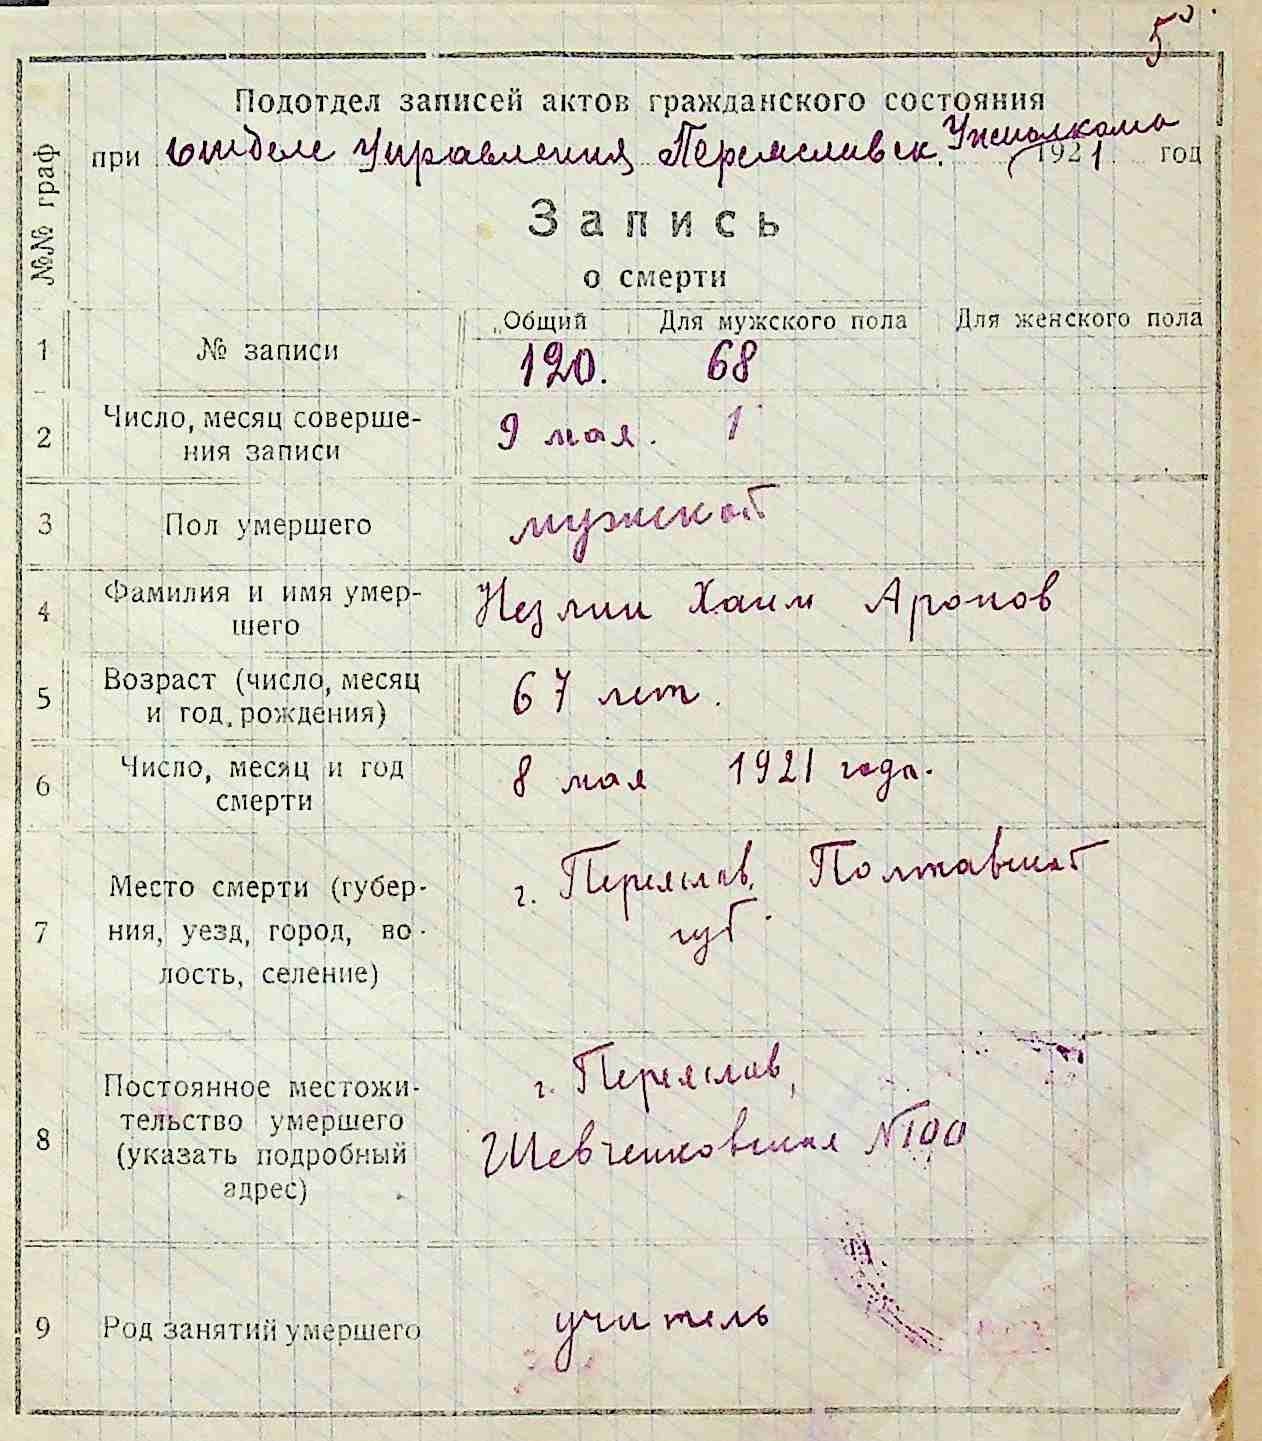 5
Подотдел записей актов гражданского состояния
при отделе Управления Переяславск. Уисполкома 1921 год
№№ граф
Запись
о смерти
1 № записи Общий Для мужского пола Для женского пола
120. 68
2 Число, месяц соверше-
ния записи
9 мая. 1
3 Пол умершего мужской
4 Фамилия и имя умер-
шего
Незлин Хаим Аронов
5 Возраст (число, месяц
и год рождения)
67 лет.
6 Число, месяц и год
смерти
8 мая 1921 года.
7 Место смерти (губер-
ния, уезд, город, во-
лость, селение)
г. Переяслав, Полтавской
губ.
8 Постоянное местожи-
тельство умершего
(указать подробный
адрес)
г. Переяслав,
Шевченковская №100
9 Род занятий умершего учитель